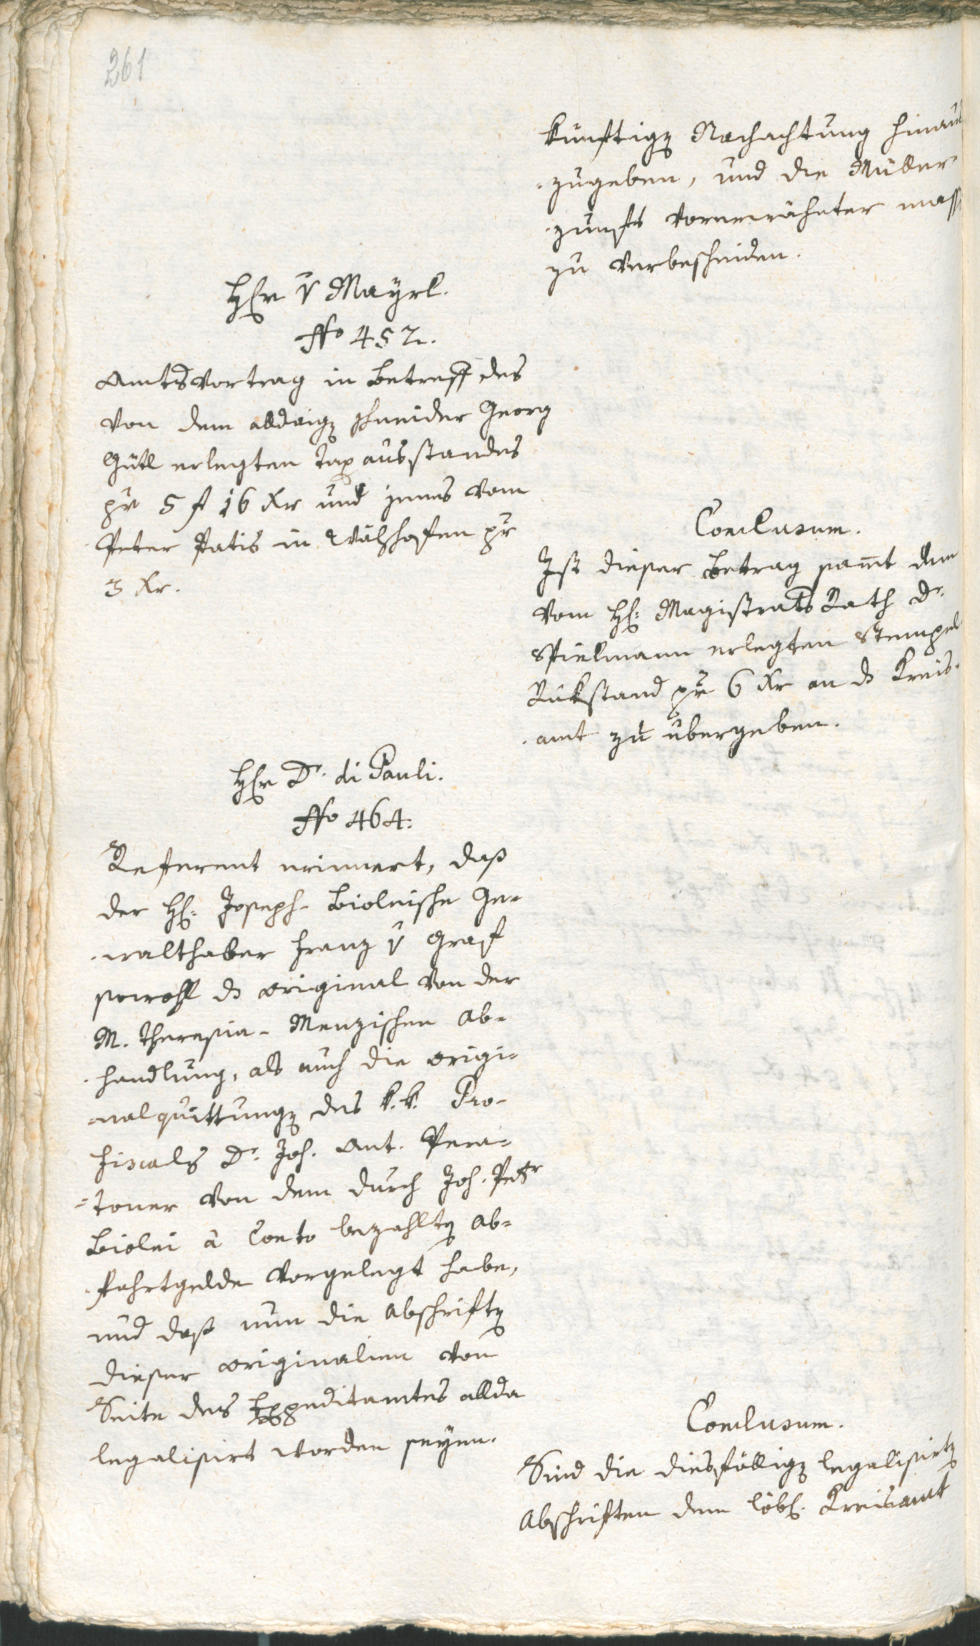 261
künftige Nachachtung hinaus
zugeben, und die Müller
zunft vorerwähnter mass
zu verbescheiden.
Hr v Mayrl.
No 452.
Amtsvortrag in Betreff des
von dem alldaig Schneider Georg
Gütl erlegten Taxausstandes
pr 5 f 16 Xr und jenes vom
Peter Patis in Wälzhofen pr
3 Xr.
Conclusum.
Ist dieser Betrag samt dem
vom H: Magistrats Rath Dr.
Spielmann erlegten Stempel
Rükstand pr 6 Xr an ds Kreis-
amt zu übergeben.
Hr Dr. di Pauli.
No 464.
Referent erinnert, daß
der H: Joseph- Bioleische Ge-
walthaber Franz v Graf
sowohl ds Original von der
M. Theresia- Menzischen Ab-
handlung, als auch die Origi-
nalquittung des k.k. Pro-
fiscals Dr. Joh. Ant. Pera-
toner von dem durch Joh. Petr
Biolei à Conto bezahlt Ab-
fahrtgelde vorgelegt habe,
und daß nun die Abschrift
dieser Originalien von
Seite des Expeditamtes allda
legalisirt worden seyen.
Conclusum.
Sind die diesfällig legalisirt
Abschriften dem löbl. Kreisamt